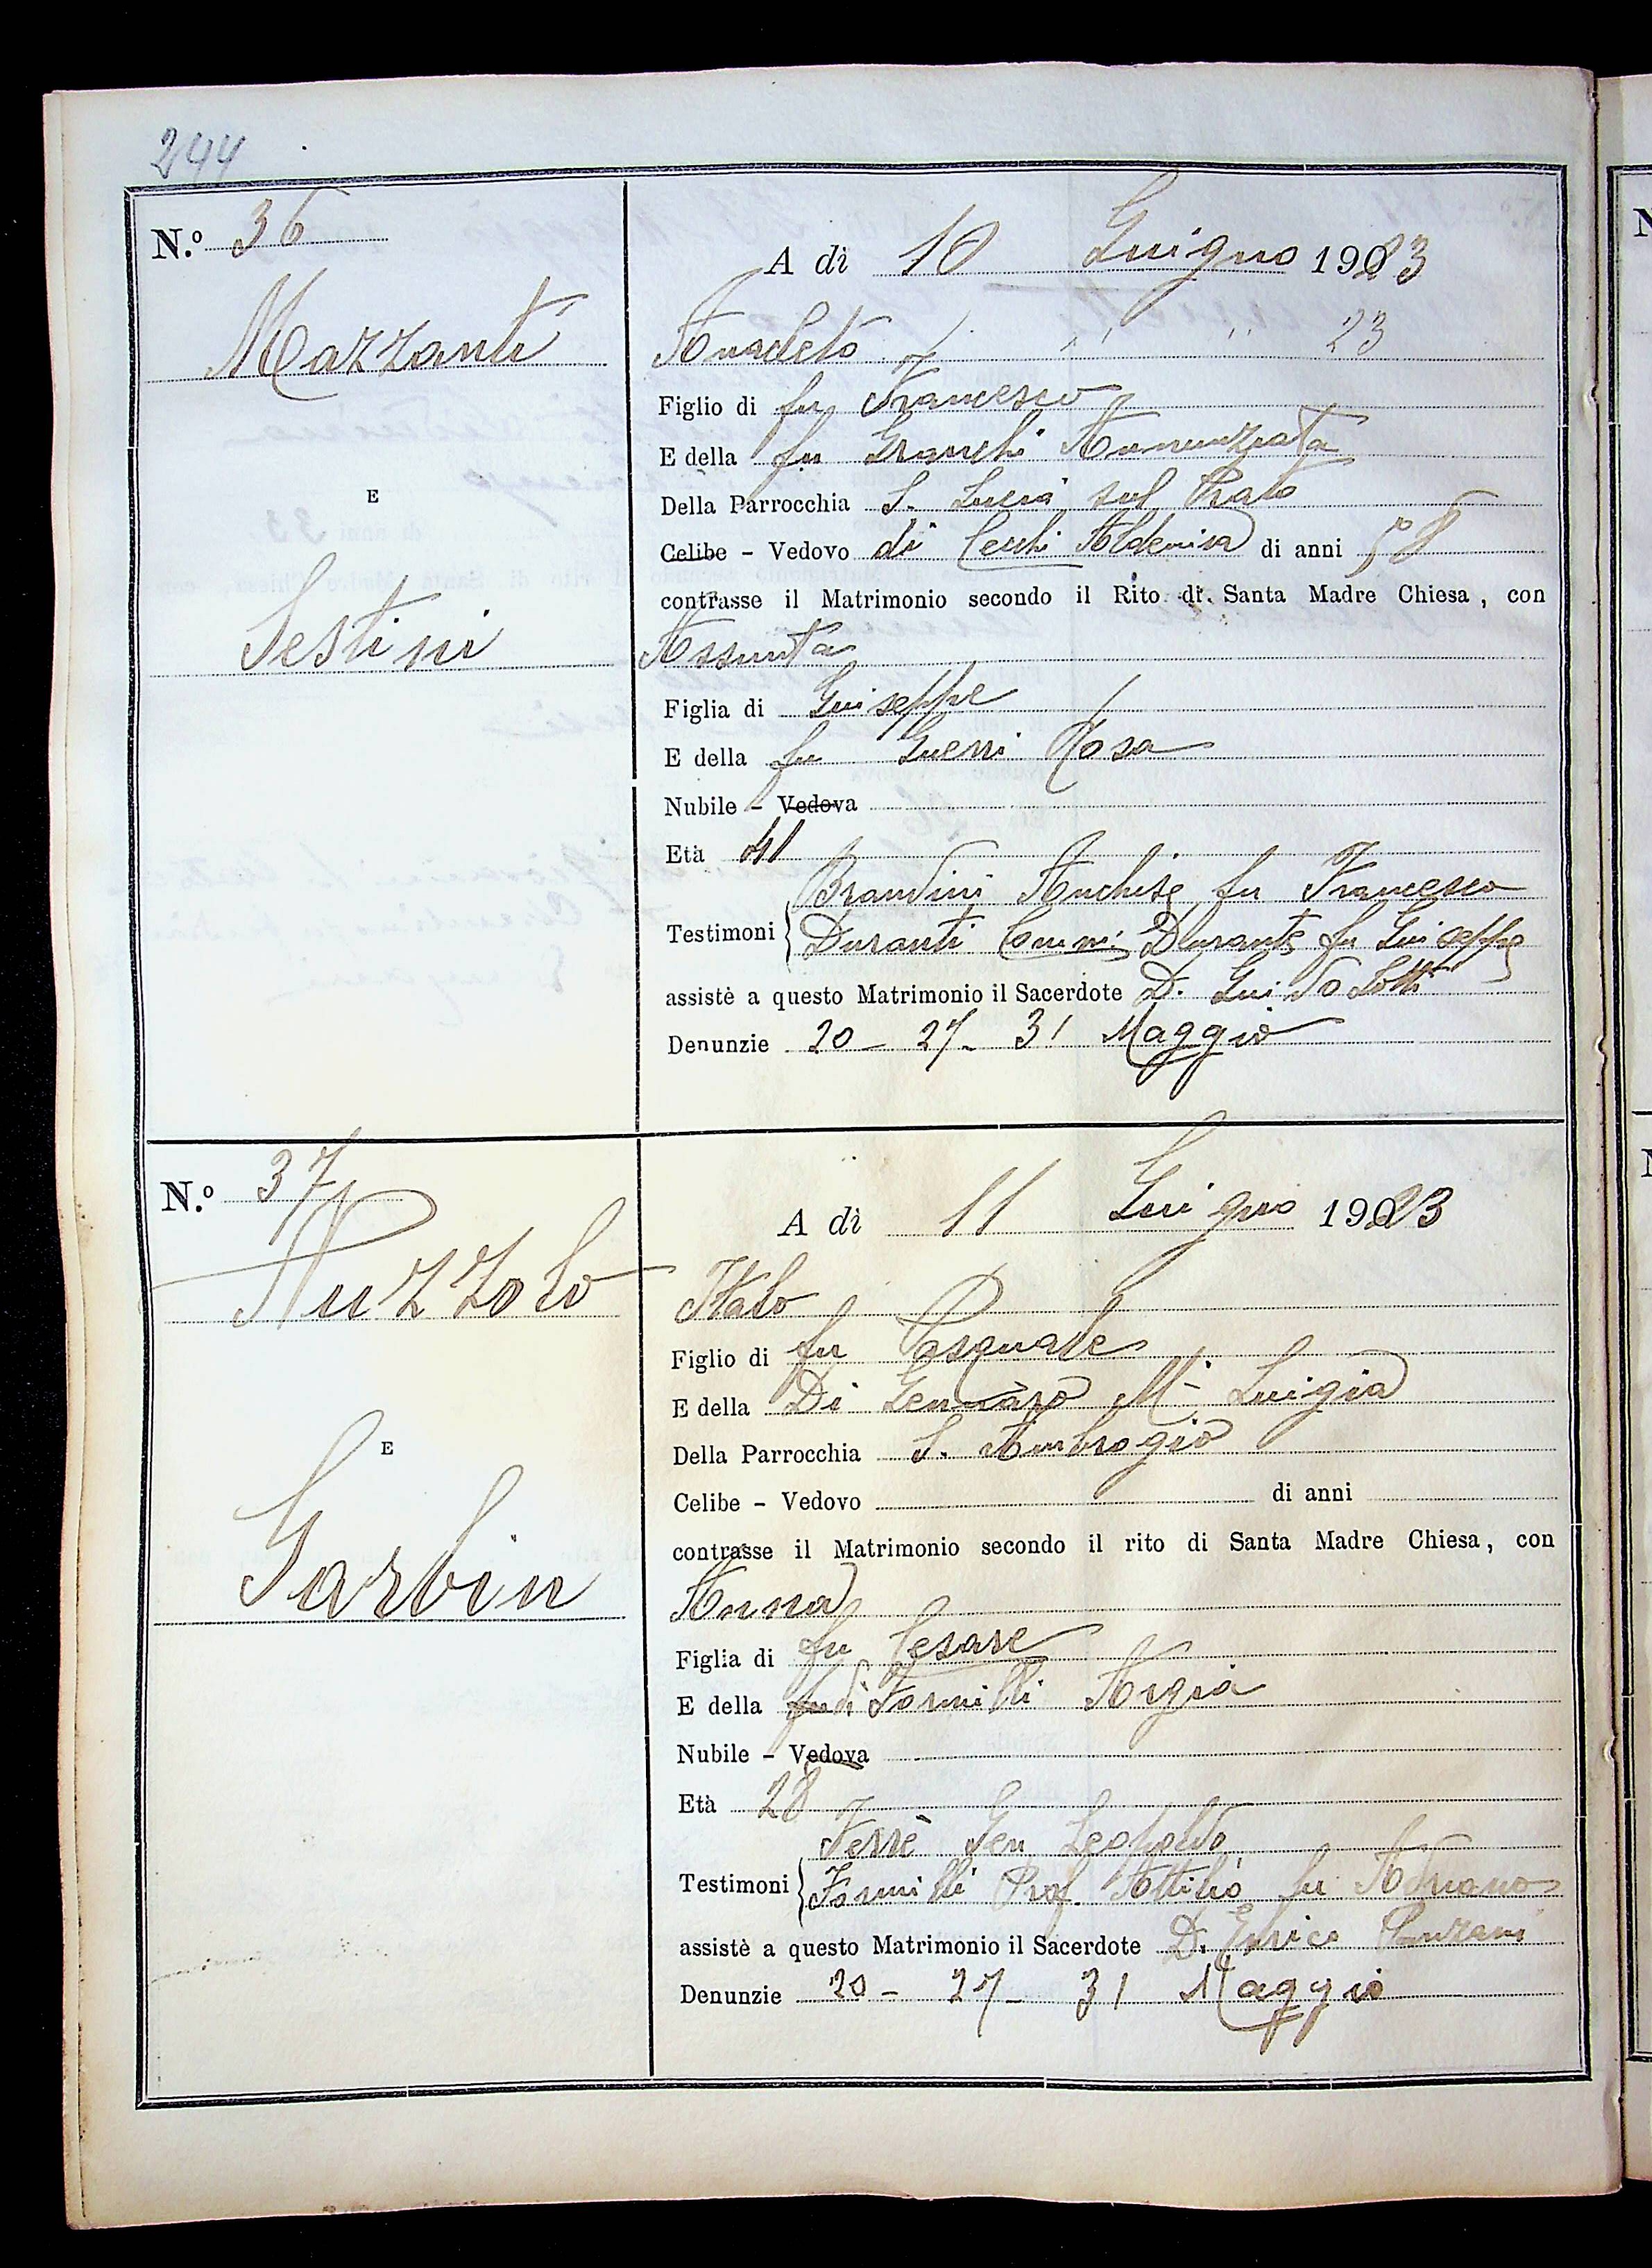 244
N.º 36
A dì 10 Giugno 1923
Mazzanti
Anacleto " " 23
Figlio di fu Francesco
E della fu Annunziata
Della Parrocchia S. Lucia sul Prato
E
Celibe - Vedovo di Cecchi Aldemira di anni 58
contrasse il Matrimonio secondo il Rito di Santa Madre Chiesa, con
Sestini
Assunta
Figlia di Giuseppe
E della fu Guerri Rosa
Nubile - Vedova
Età 41
Brandini Anchise fu Francesco
Testimoni Duranti Durante fu Giuseppe
assistè a questo Matrimonio il Sacerdote D. Guido Lotti
Denunzie 20 - 27 - 31 Maggio
N.º 37
A dì 11 Giugno 1923
Nuzzolo
Italo
Figlio di fu Pasquale
E della Di Gennaro M.ª Luigia
Della Parrocchia S. Ambrogio
E
Celibe - Vedovo di anni
contrasse il Matrimonio secondo il rito di Santa Madre Chiesa, con
Garbin
Anna
Figlia di fu Cesare
E della di Formilli Argia
Nubile - Vedova
Età 28
Ferrè Gen Leopoldo
Testimoni Formilli Prof. Attilio fu Adriano
assistè a questo Matrimonio il Sacerdote D. Enrico
Denunzie 20 - 27 - 31 Maggio